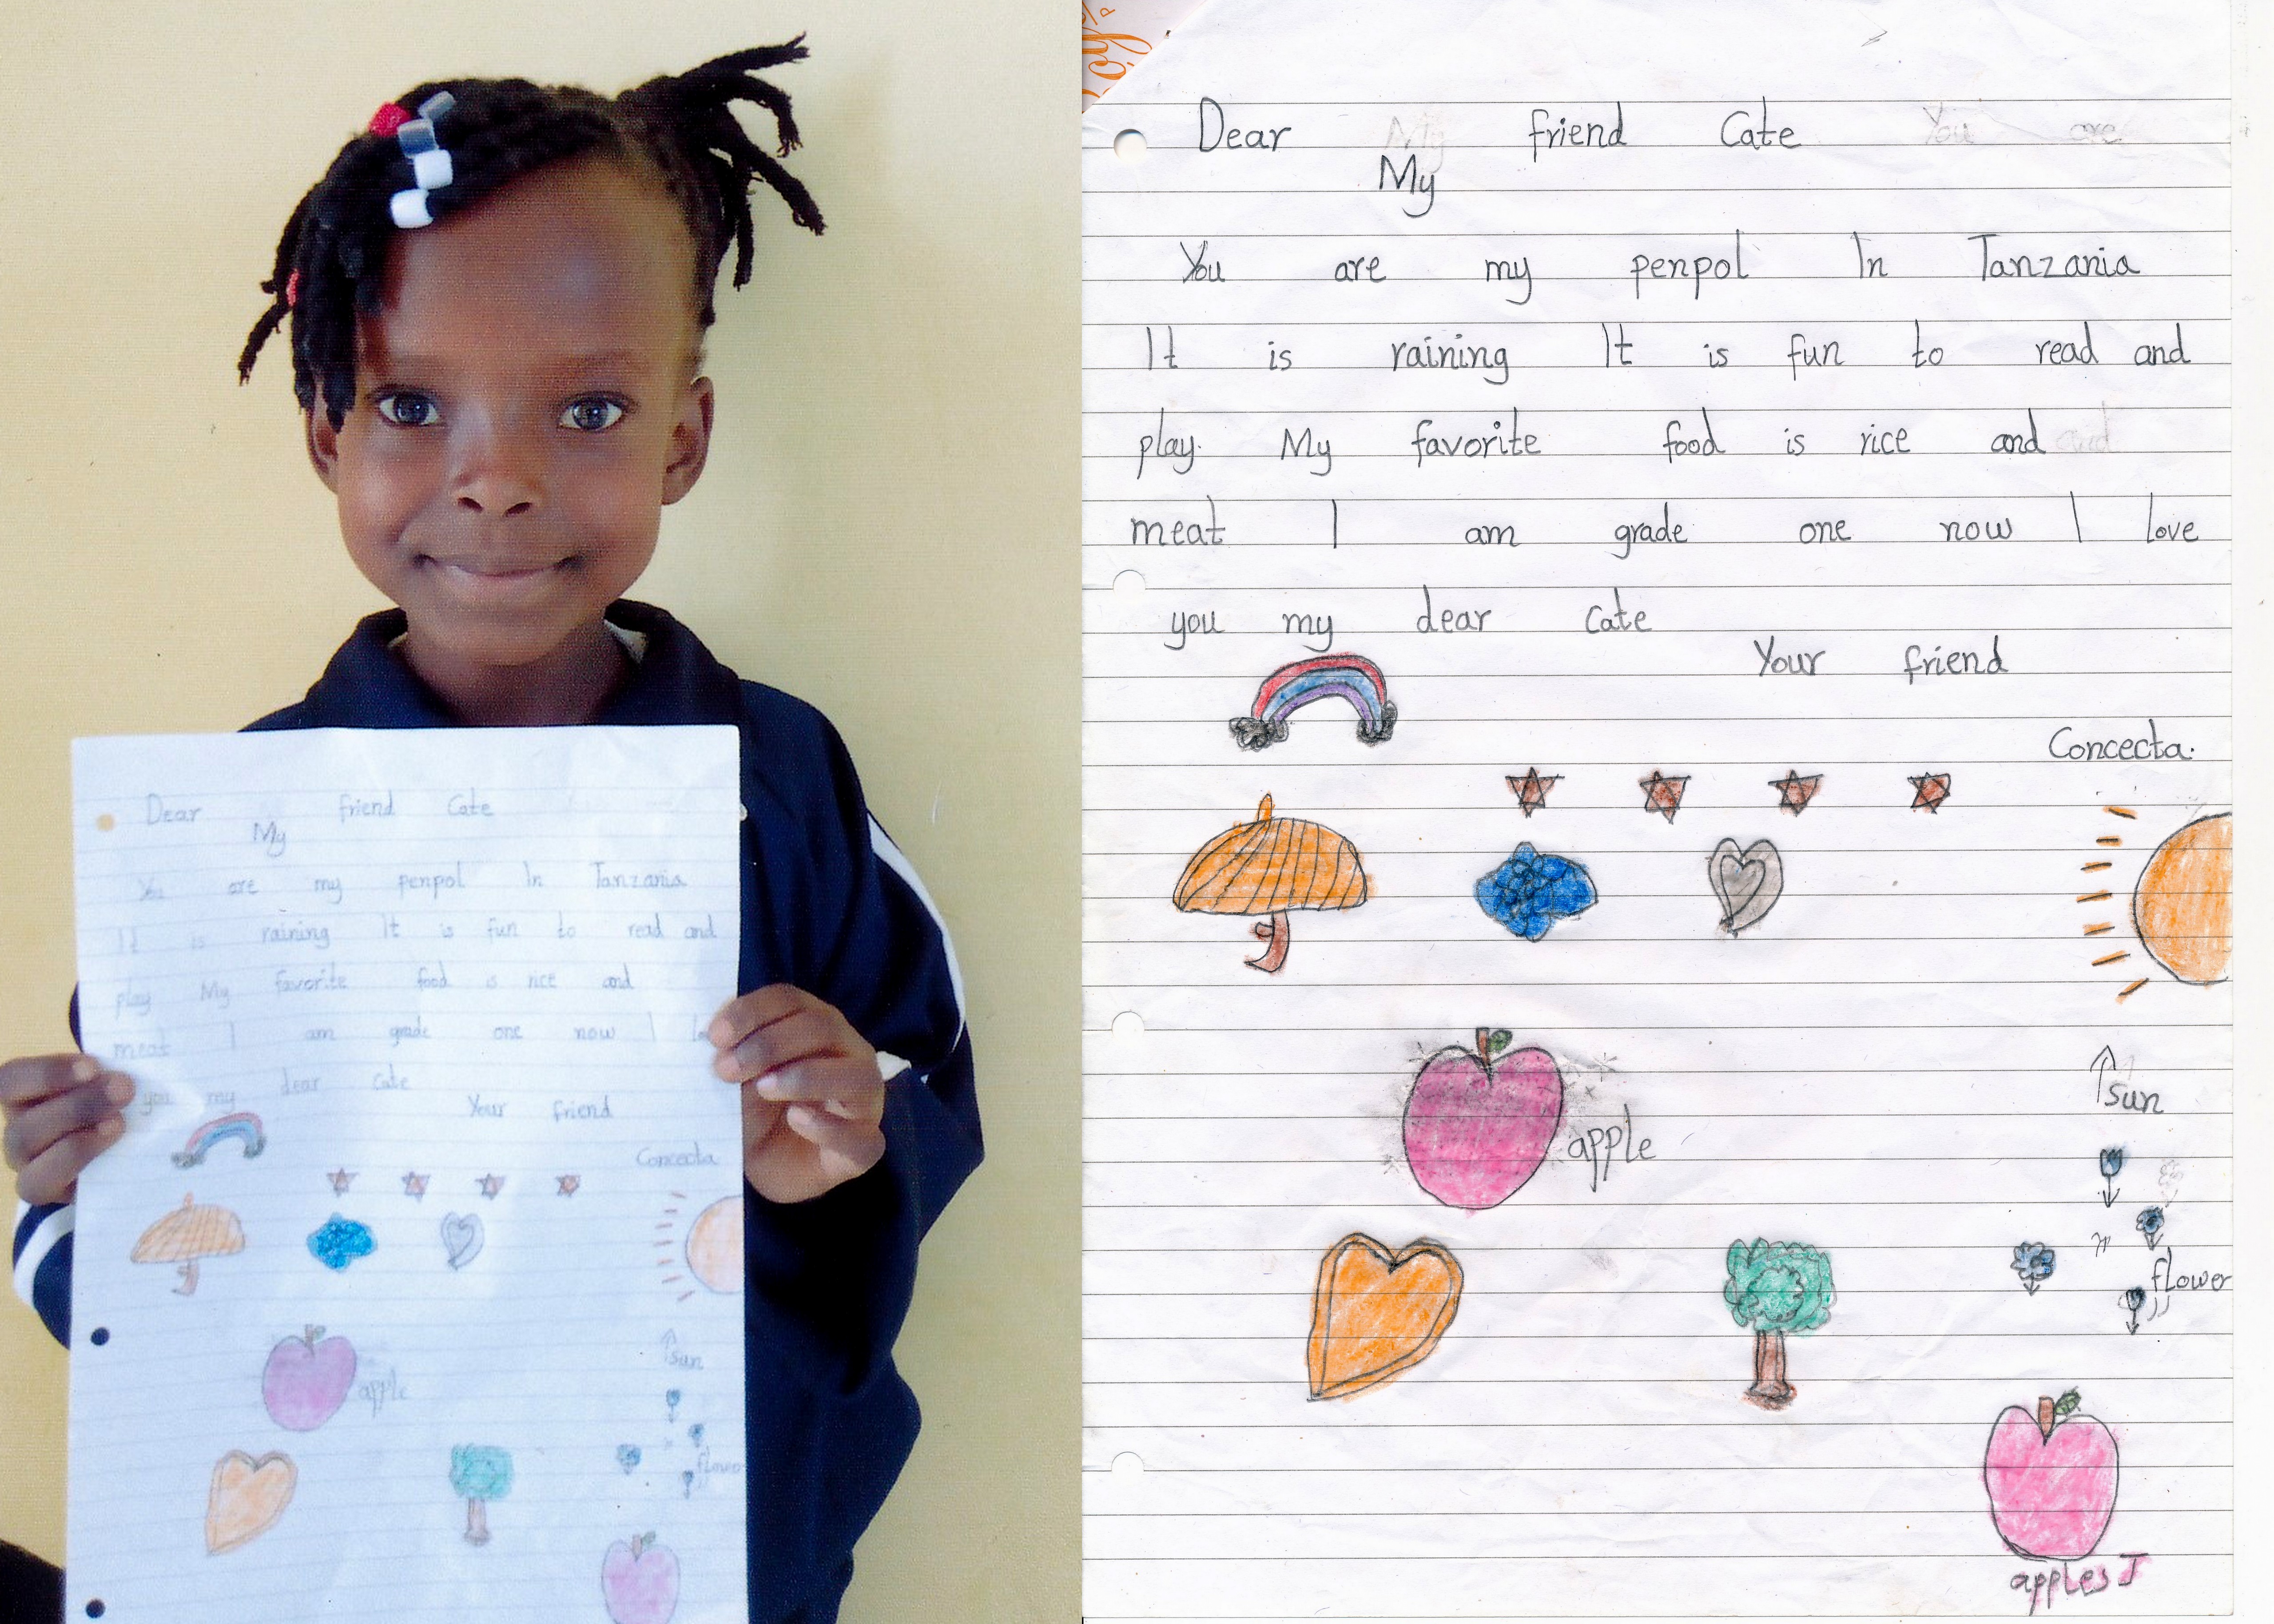 Dear friend Cate You are
My
You are my penpol In Tanzania
It is raining It is fun to read and
play. My favorite food is rice and and
meat I am grade one now I love
you my dear Cate
Your friend
Concecta.
sun
apple
flower
apples J
Dear friend Cate
My
You are my penpol In Tanzania
It is raining It is fun to read and
play My favorite food is rice and
meat I am grade one now I
you my dear Cate
Your friend
Concecta
sun
apple
flower